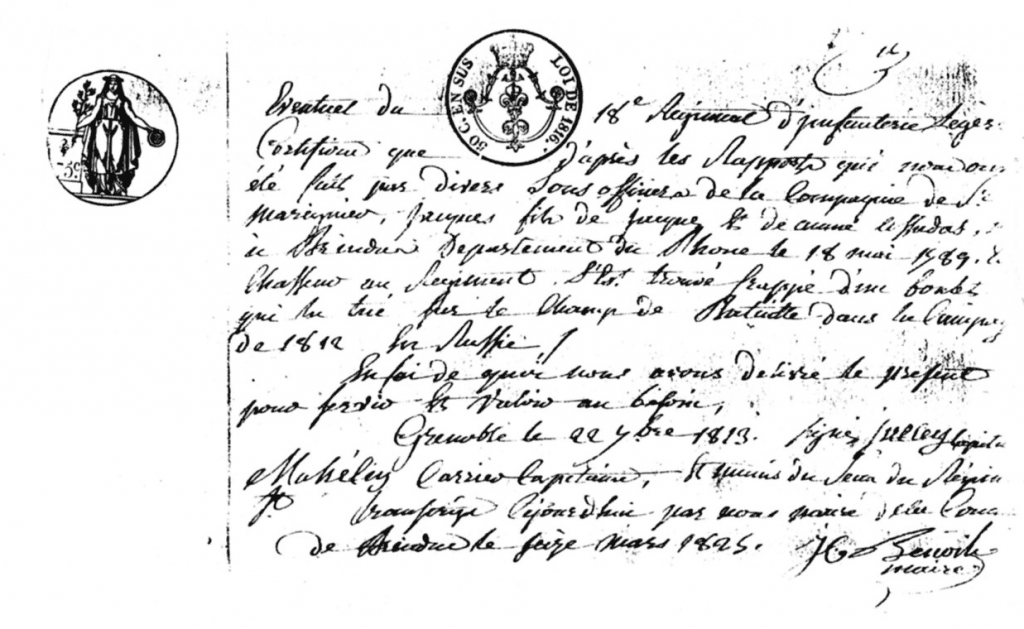 50 C. EN SUS LOI DE 1816.
Eventuel du 18e Régiment d'infanterie Légèr
Certifions que d'après les Rapports qui nous ont
été fait par divers Sous officiers de la Compagnie de Sr
Jacques fils de Jacques Et de
Département du Rhone le 18 mai 1789.
Chasseur au Régiment. S'Est trouvé frappé d'un boulet
qui la tué sur le Champ de Bataille dans la Campag
de 1812 En Russie
En foi de quoi nous avons délivré le présent
pour servir Et Valoir au besoin,
Grenoble le 22 7bre 1813. signé
Carrier Capitaine, Et munis du Seau du Régim
transcrit par nous maire de la Com
de le seize mars 1825. Benoit
maire